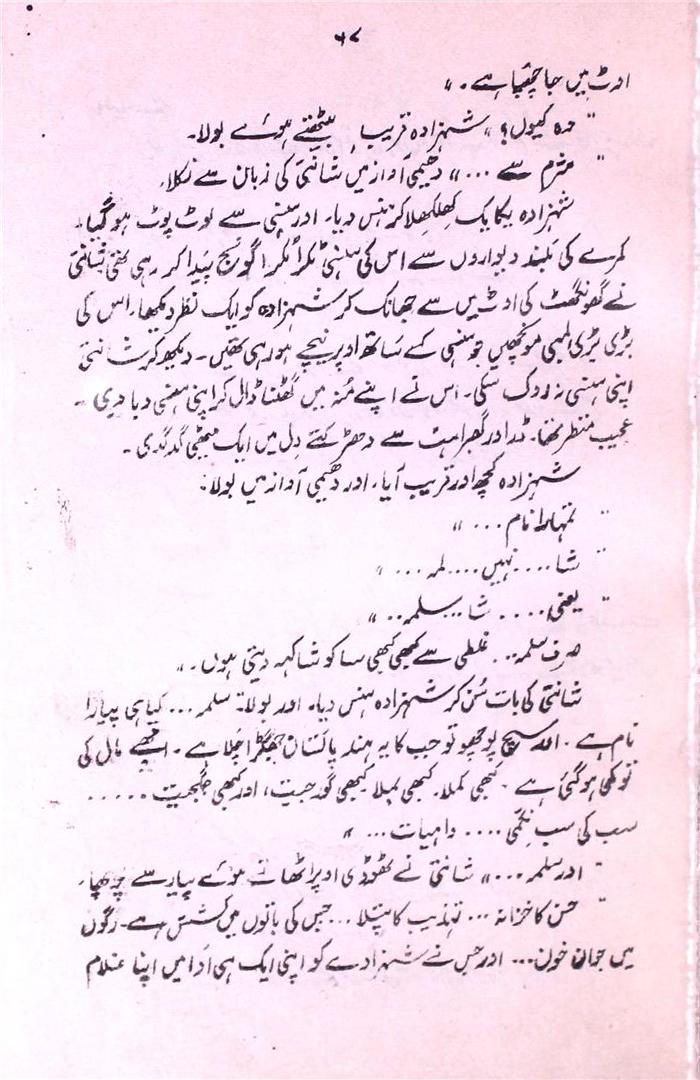 ۶۷
اوٹ میں جا چھپا ہے۔"
"وہ کیوں؟" شہزادہ قریب بیٹھتے ہوئے بولا۔
"شرم سے ..." دھیمی آواز میں شانتی کی زبان سے نکلا۔
شہزادہ یکایک کھلکھلا کر ہنس دیا۔ اور ہنسی سے لوٹ پوٹ ہو گیا۔
کمرے کی بلند دیواروں سے اس کی ہنسی ٹکرا ٹکرا گونج پیدا کر رہی تھی شانتی
نے گھونگھٹ کی اوٹ میں سے جھانک کر شہزادہ کو ایک نظر دیکھا۔ اس کی
بڑی بڑی لمبی مونچھیں جو ہنسی کے ساتھ اوپر نیچے ہو رہی تھیں۔ دیکھ کر شانتی
اپنی ہنسی نہ روک سکی۔ اس نے اپنے منہ میں گھٹنا ڈال کر اپنی ہنسی دبا دی۔
عجیب منظر تھا۔ ڈر اور گھبراہٹ سے دھڑکتے دل میں ایک میٹھی گدگدی۔
شہزادہ کچھ اور قریب آیا، اور دھیمی آواز میں بولا۔
"تمہارا نام ..."
"شا .... نہیں .... لمہ ..."
"یعنی .... شا ... سلمہ .."
صرف سلمہ .. غلطی سے کبھی کبھی سا کو شا کہہ دیتی ہوں۔"
شانتی کی بات سُن کر شہزادہ ہنس دیا۔ اور بولا۔ سلمہ ... کیا ہی پیارا
نام ہے۔ اللہ سچ پوچھو تو جب کا یہ ہند پاکستان جھگڑا چلا ہے۔ اچھے مال کی
تو کمی ہو گئی ہے۔ کبھی کملا۔ کبھی بملا کبھی گورجیت، اور کبھی جگجیت .....
سب کی سب نکمی .... واہیات ..."
"اور سلمہ ..." شانتی نے ٹھوڈی اوپر اٹھاتے ہوئے پیار سے پوچھا۔
"حسن کا خزانہ ... تہذیب کا پتلا ... جس کی باتوں میں کشش ہے۔ رگوں
میں جوان خون ... اور جس نے شہزادے کو اپنی ایک ہی ادا میں اپنا غلام